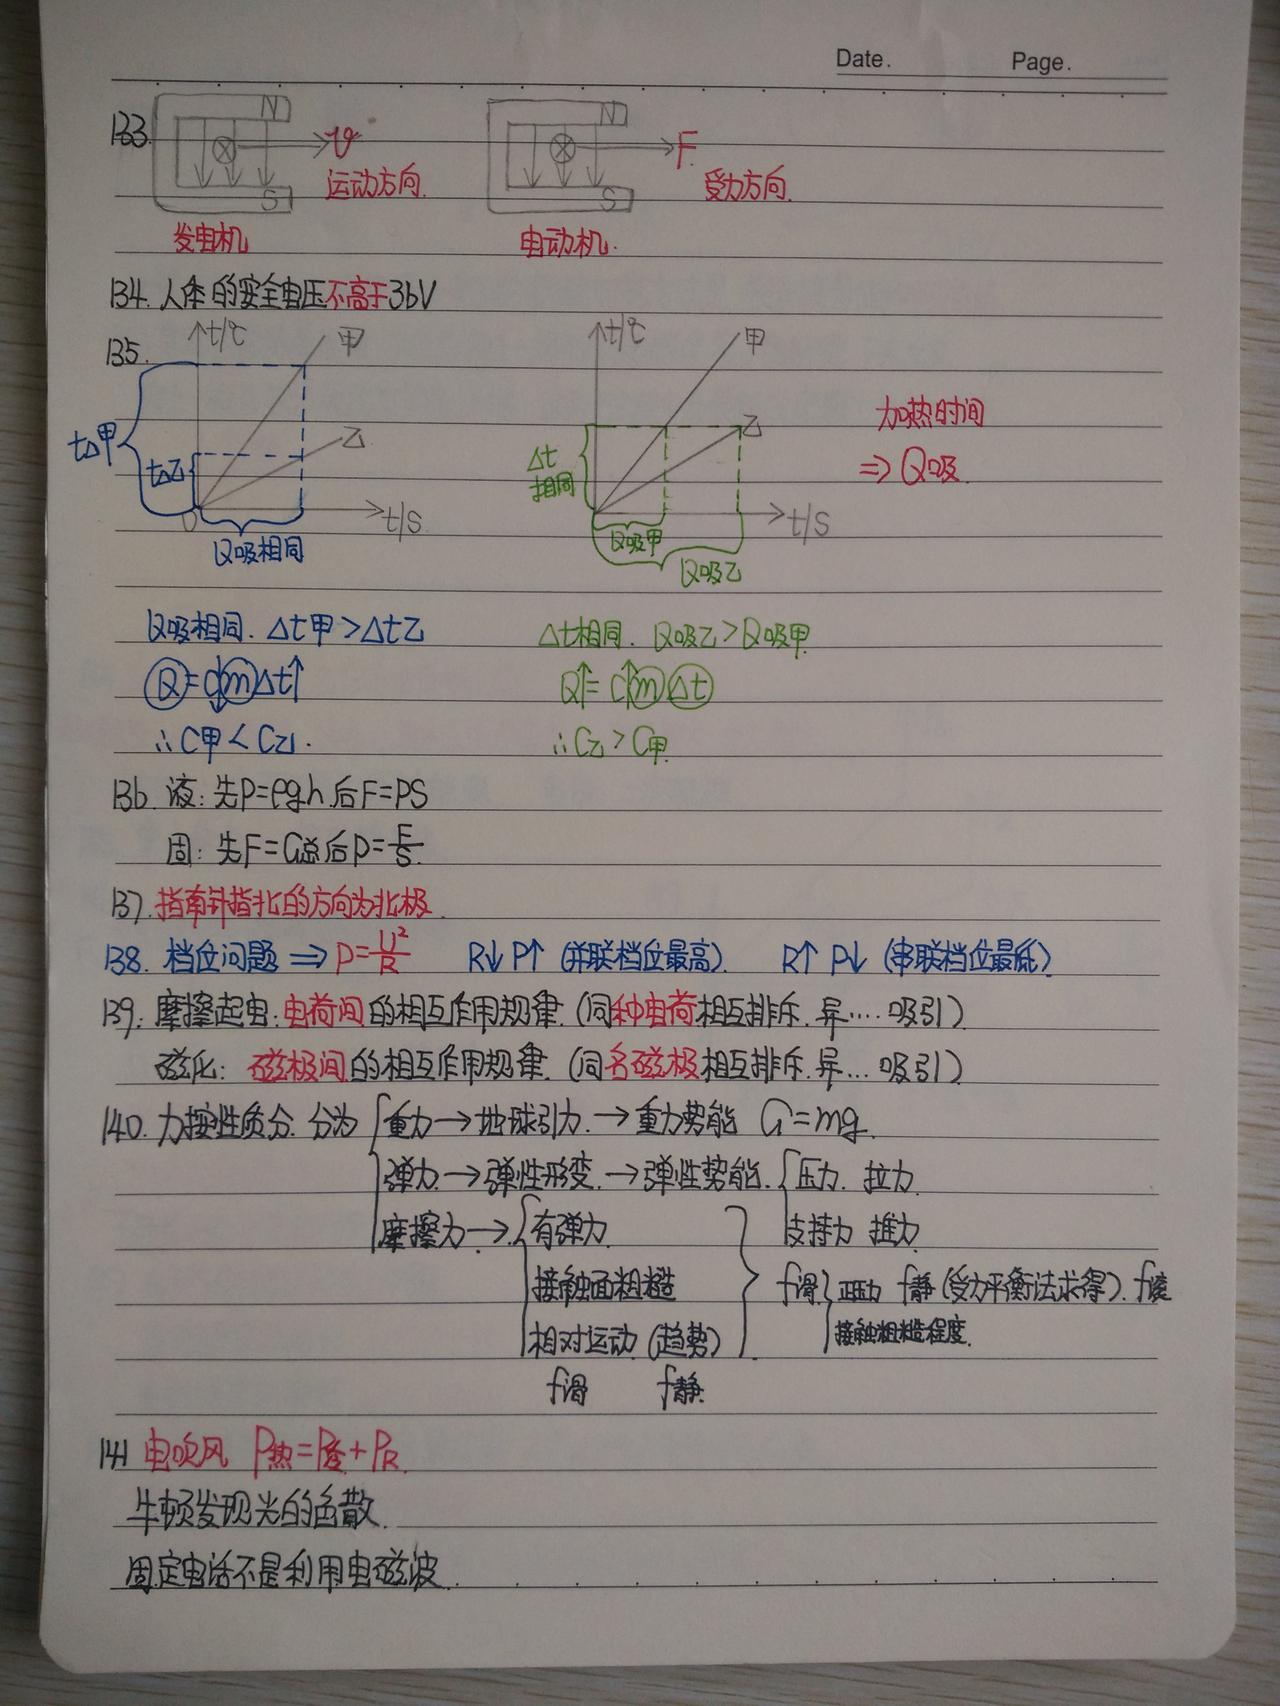 Date. Page.
133. N S v 运动方向. 发电机
N S F 受力方向. 电动机.
134. 人体的安全电压不高于36V
135. t/℃ 甲 乙 t△甲 t△乙 0 t/S Q吸相同
t/℃ 甲 乙 Δt相同 t/S Q吸甲 Q吸乙
加热时间
⇒ Q吸
Q吸相同. Δt甲>Δt乙
Δt相同. Q吸乙>Q吸甲.
Q=c↓mΔt↑
Q↑=c↑mΔt
∴C甲<C乙.
∴C乙>C甲.
136. 液: 先P=ρgh后F=PS
固: 先F=G总后p=F/S.
137. 指南针指北的方向为北极.
138. 档位问题 ⇒ P=U²/R R↓ P↑ (并联档位最高). R↑ P↓ (串联档位最低)
139. 摩擦起电: 电荷间的相互作用规律. (同种电荷相互排斥. 异.... 吸引).
磁化: 磁极间的相互作用规律. (同名磁极相互排斥. 异... 吸引)
140. 力按性质分. 分为 { 重力→地球引力.→重力势能 G=mg.
弹力→弹性形变.→弹性势能. { 压力. 拉力.
摩擦力→ { 有弹力. 支持力 推力
接触面粗糙 } f滑 { 正压力 f静 (受力平衡法求得).
相对运动 (趋势) 接触粗糙程度.
f滑 f静.
141 电吹风 P热=P总+PR.
牛顿发现光的色散.
固定电话不是利用电磁波.